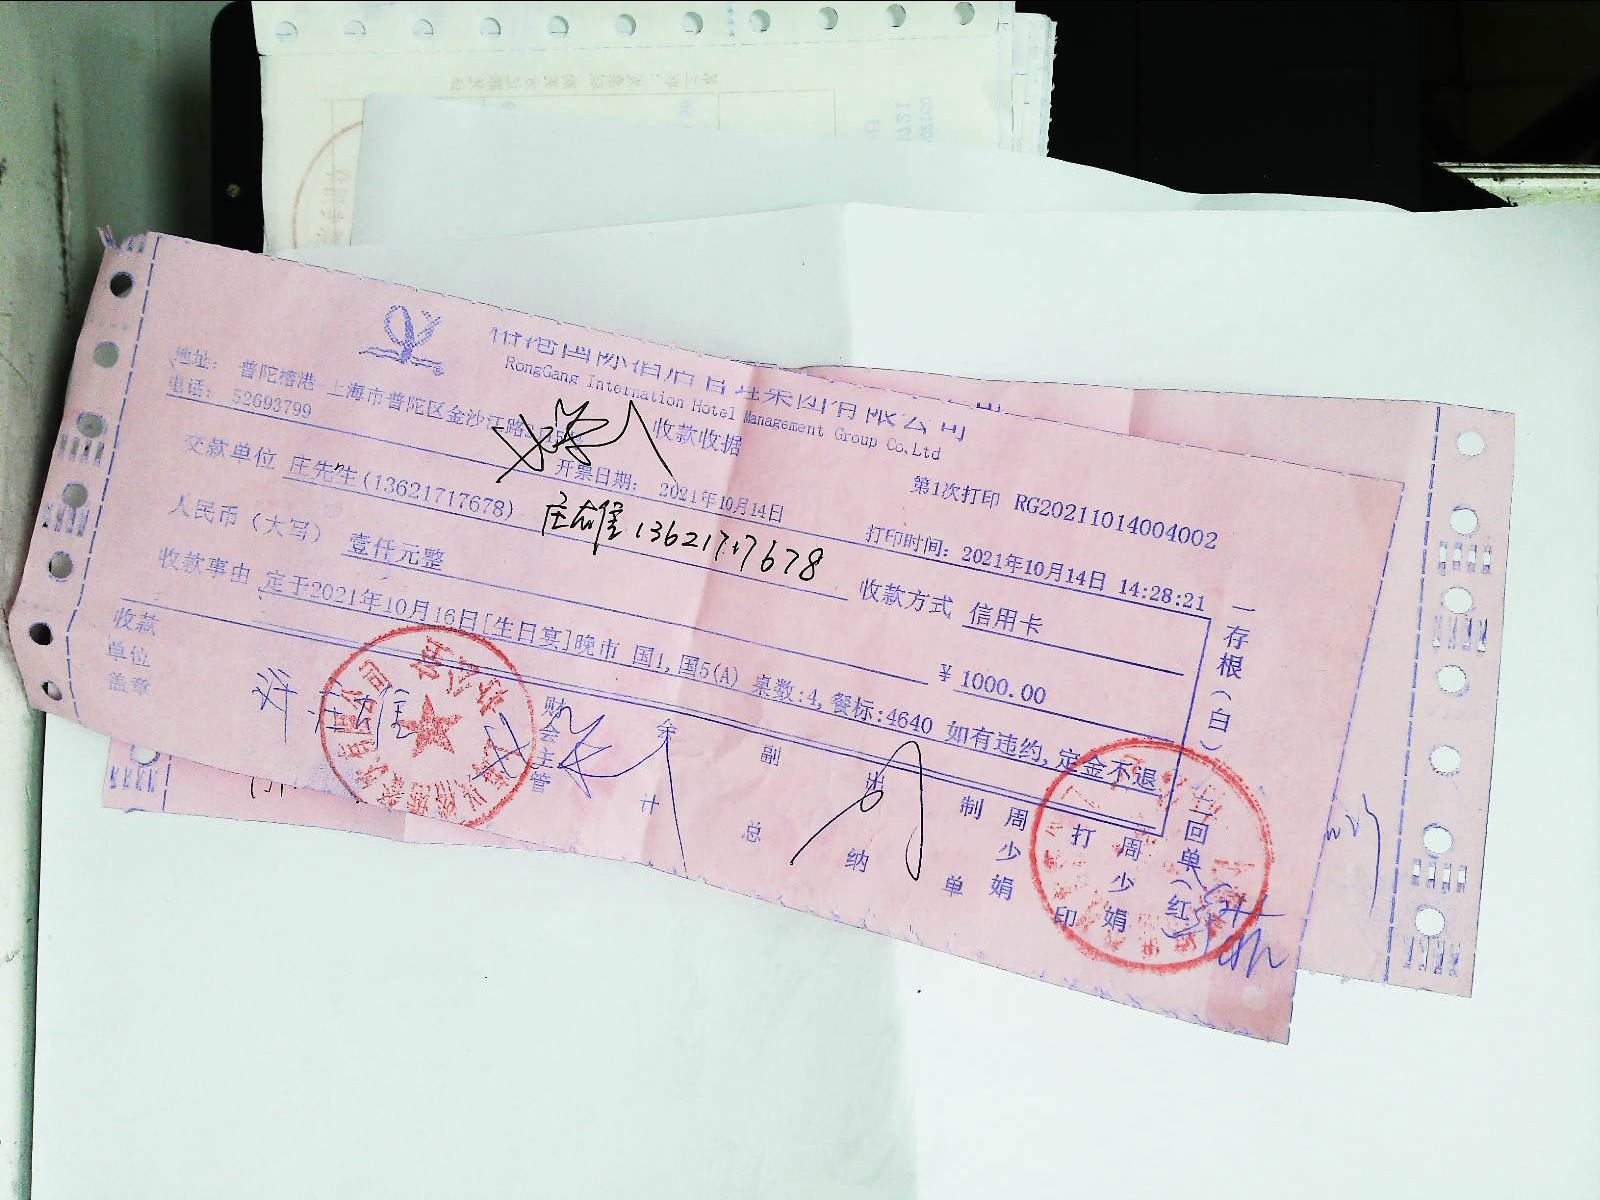 RongGang Internation Hotel Management Group Co.Ltd
收款收据
地址: 普陀榕港 上海市普陀区金沙江路
电话: 52693799
开票日期: 2021年10月14日
第1次打印 RG20211014004002
打印时间: 2021年10月14日 14:28:21
交款单位 庄先生(13621717678)
13621717678
收款方式 信用卡
人民币(大写) 壹仟元整
¥ 1000.00
收款事由 定于2021年10月16日[生日宴]晚市 国1,国5(A) 桌数:4,餐标:4640 如有违约,定金不退
收款单位盖章
财会主管
会计
副总
出纳
制单 周少娟
打印 周少娟
一存根(白)
二回单(红)